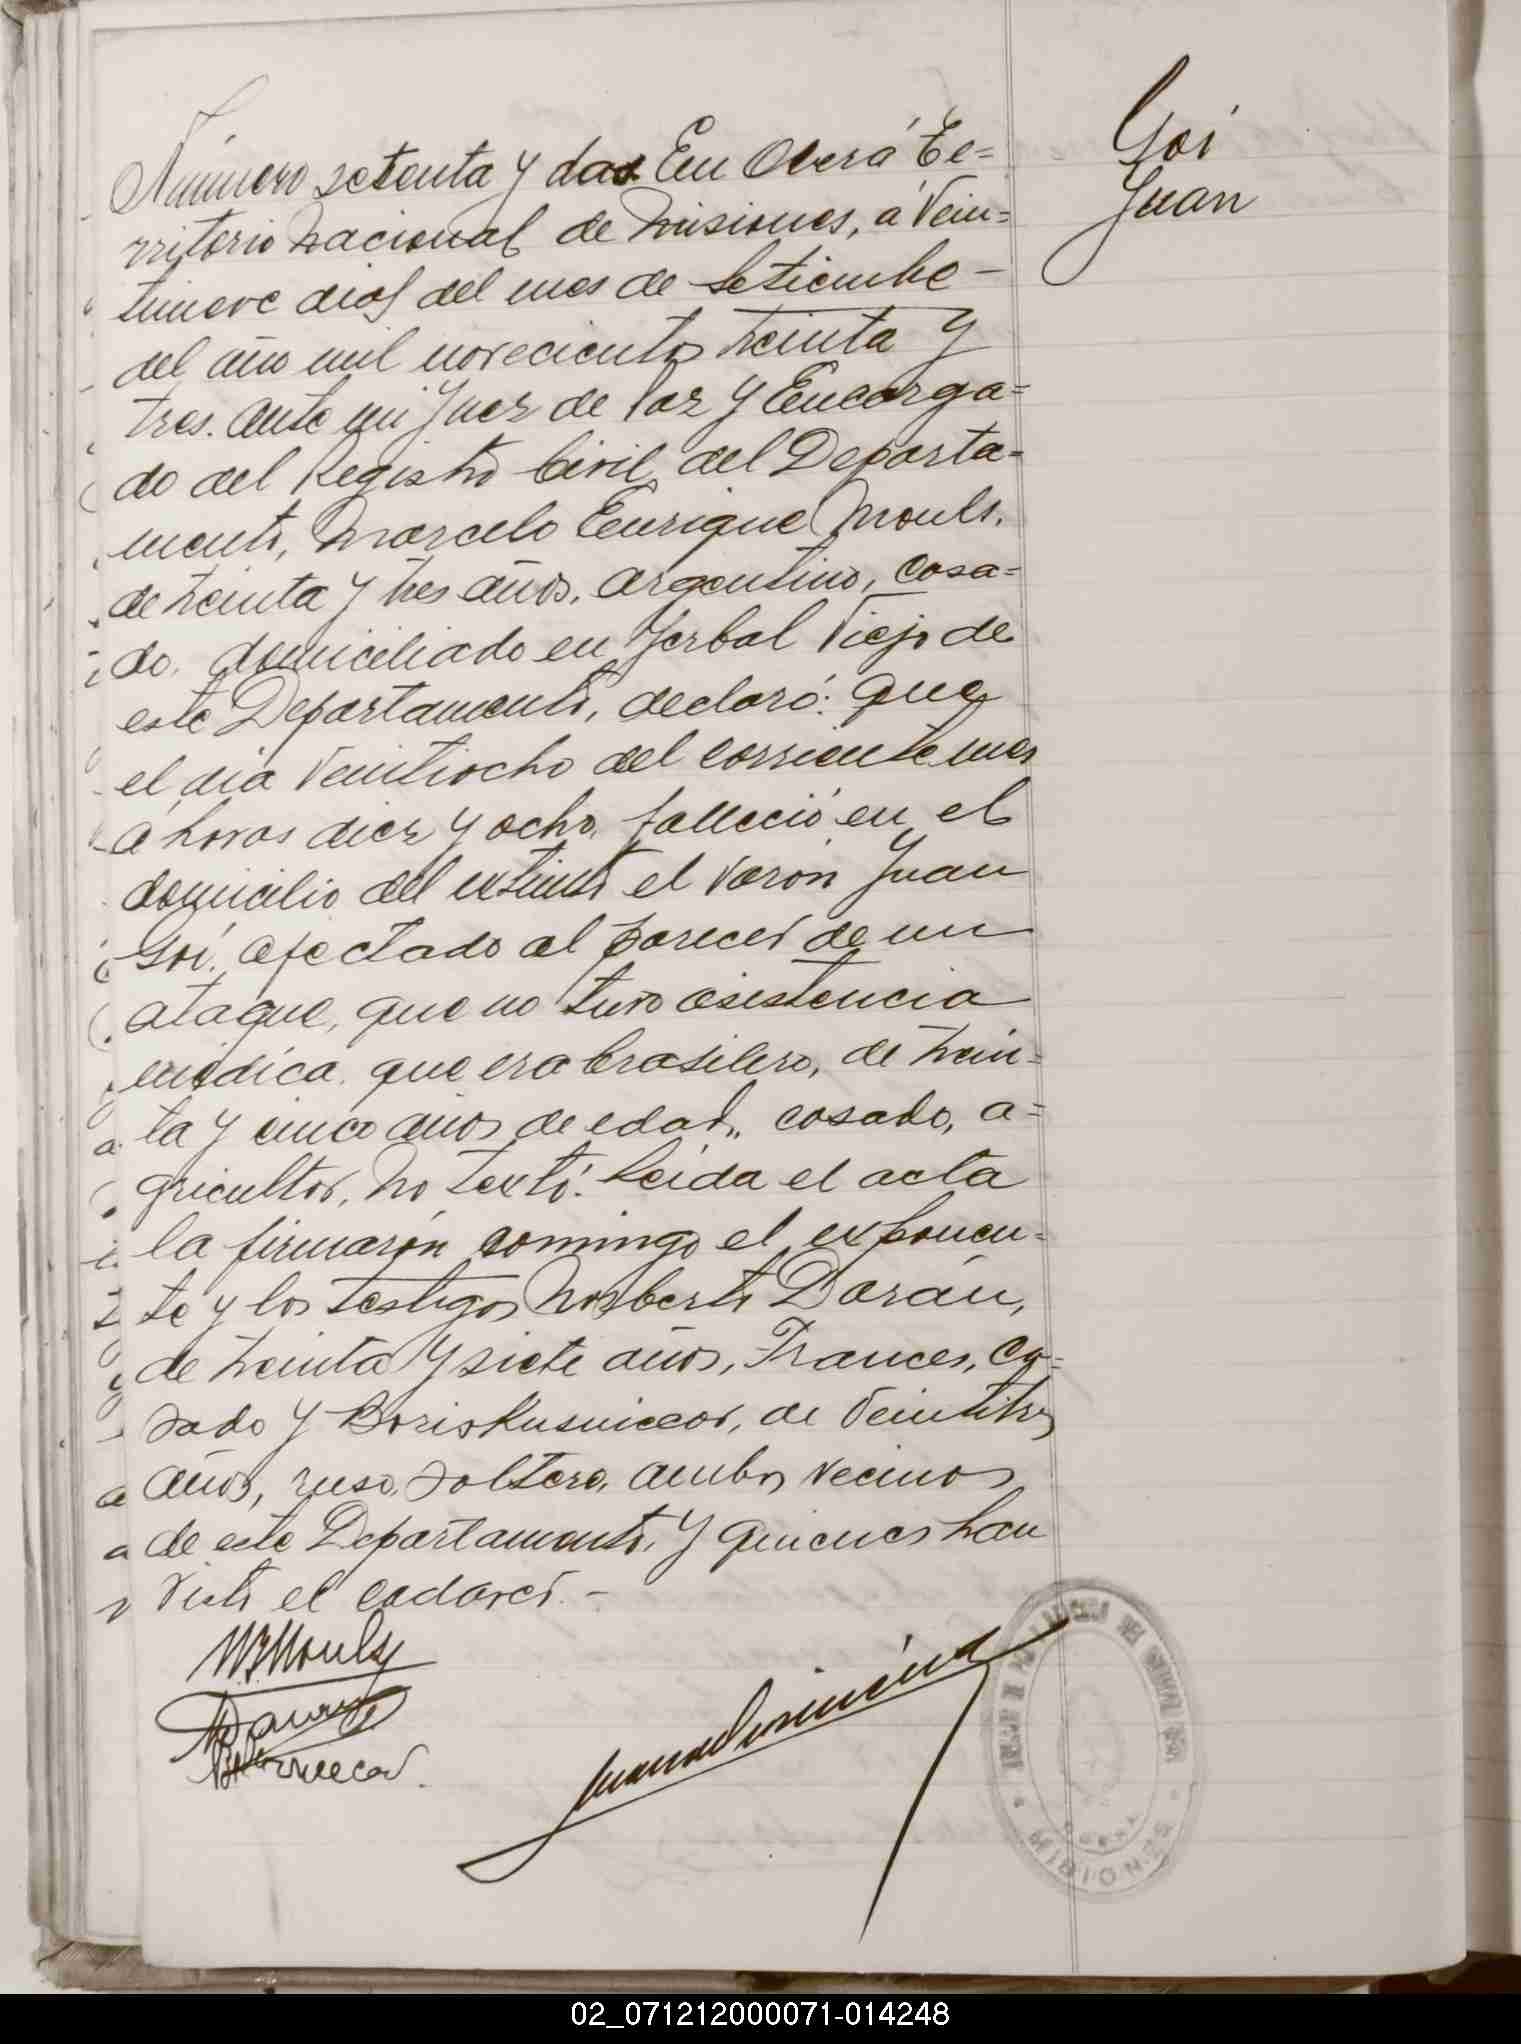 Goi
Juan
Número setenta y dos En Oberá Te=
rritorio Nacional de Misiones, á Vein=
tinueve dias del mes de Setiembre -
del año mil novecientos treinta y
tres. Ante mi Juez de Paz y Encarga=
do del Registro Civil del Departa=
mento, Marcelo Enrique Mouls.
de treinta y tres años, argentino, casa=
do, domiciliado en Yerbal Viejo de
este Departamento, declaró: que
el día Veintiocho del corriente mes
á horas diez y ocho, falleció en el
domicilio del extinto el varón Juan
Goi. afectado al parecer de un
ataque, que no tuvo asistencia
médica. que era brasilero, de trein=
ta y cinco años de edad,, casado, a=
gricultor, No testó. Leida el acta
la firmarón conmigo el exponen=
te y los testigos Norberto Dorán,
de treinta y siete años, Frances, ca=
sado y Boris Kusniecor, de Veintitres
años, ruso, soltero, ambos vecinos
de este Departamento, y quienes han
visto el cadaver. -
MISIONES